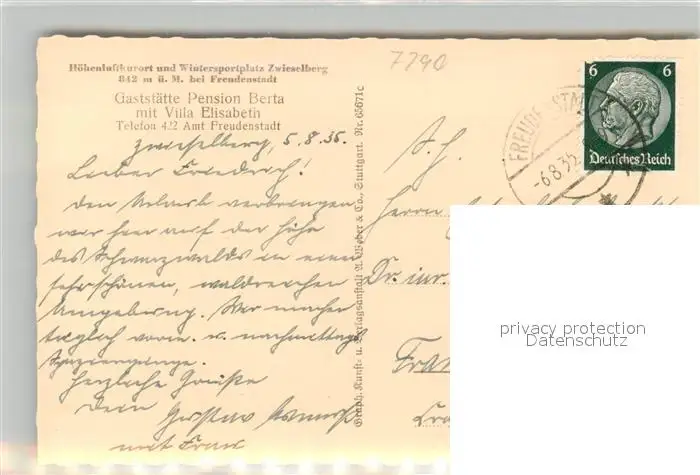 7290
Höhenluftkurort und Wintersportplatz Zwieselberg
842 m ü. M. bei Freudenstadt
Gaststätte Pension Berta
mit Villa Elisabeth
Telefon 422 Amt Freudenstadt
Zwieselberg, 5.8.35.
Lieber Friedrich!
Den Urlaub verbringen
wir hier auf der Höhe
des Schwarzwalds in einer
sehr schönen, waldreichen
Umgebung. Wir machen
täglich vorm. u. nachmittags
Spaziergänge.
Herzliche Grüße
Dein Gustav
mit Frau
Graph. Kunst- u. Verlagsanstalt A. Weber & Co., Stuttgart. Nr. 65671c
6 6
Deutsches Reich
-6.8.35
S. H.
Herrn
Dr. iur.
privacy protection
Datenschutz